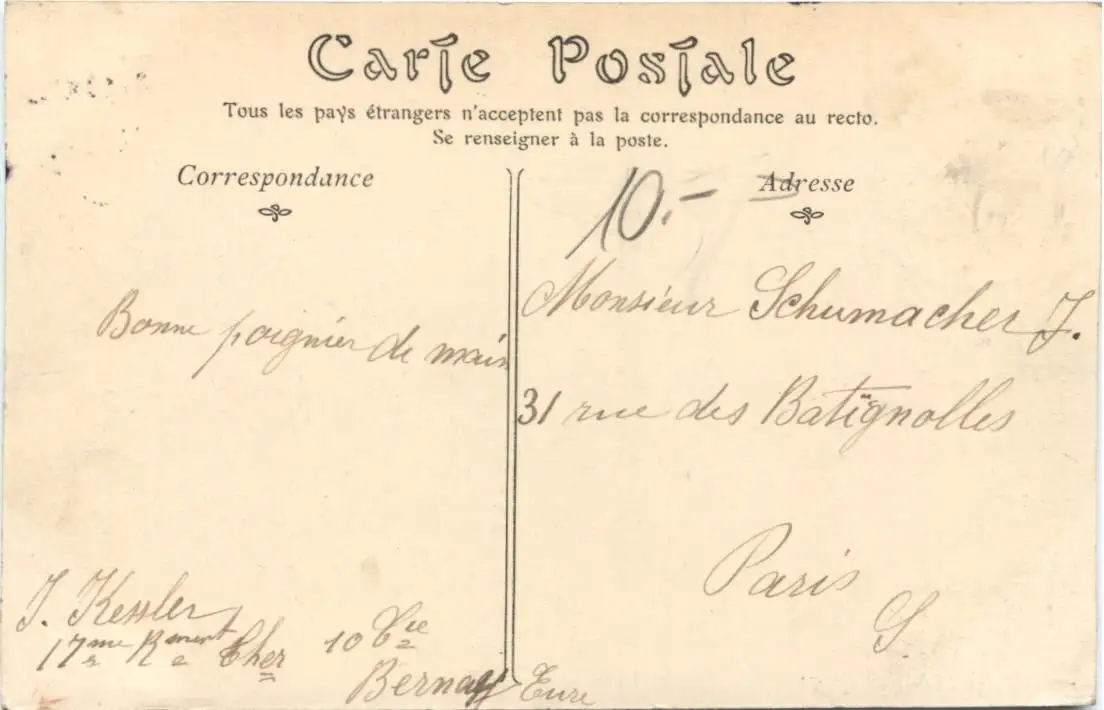 Carte Postale
Tous les pays étrangers n'acceptent pas la correspondance au recto.
Se renseigner à la poste.
Correspondance
Adresse
10.-
Bonne poignier de main
Monsieur Schumacher J.
31 rue des Batignolles
Paris
S
J. Kessler
17me Rment Cher 10 Cie
Bernay Eure